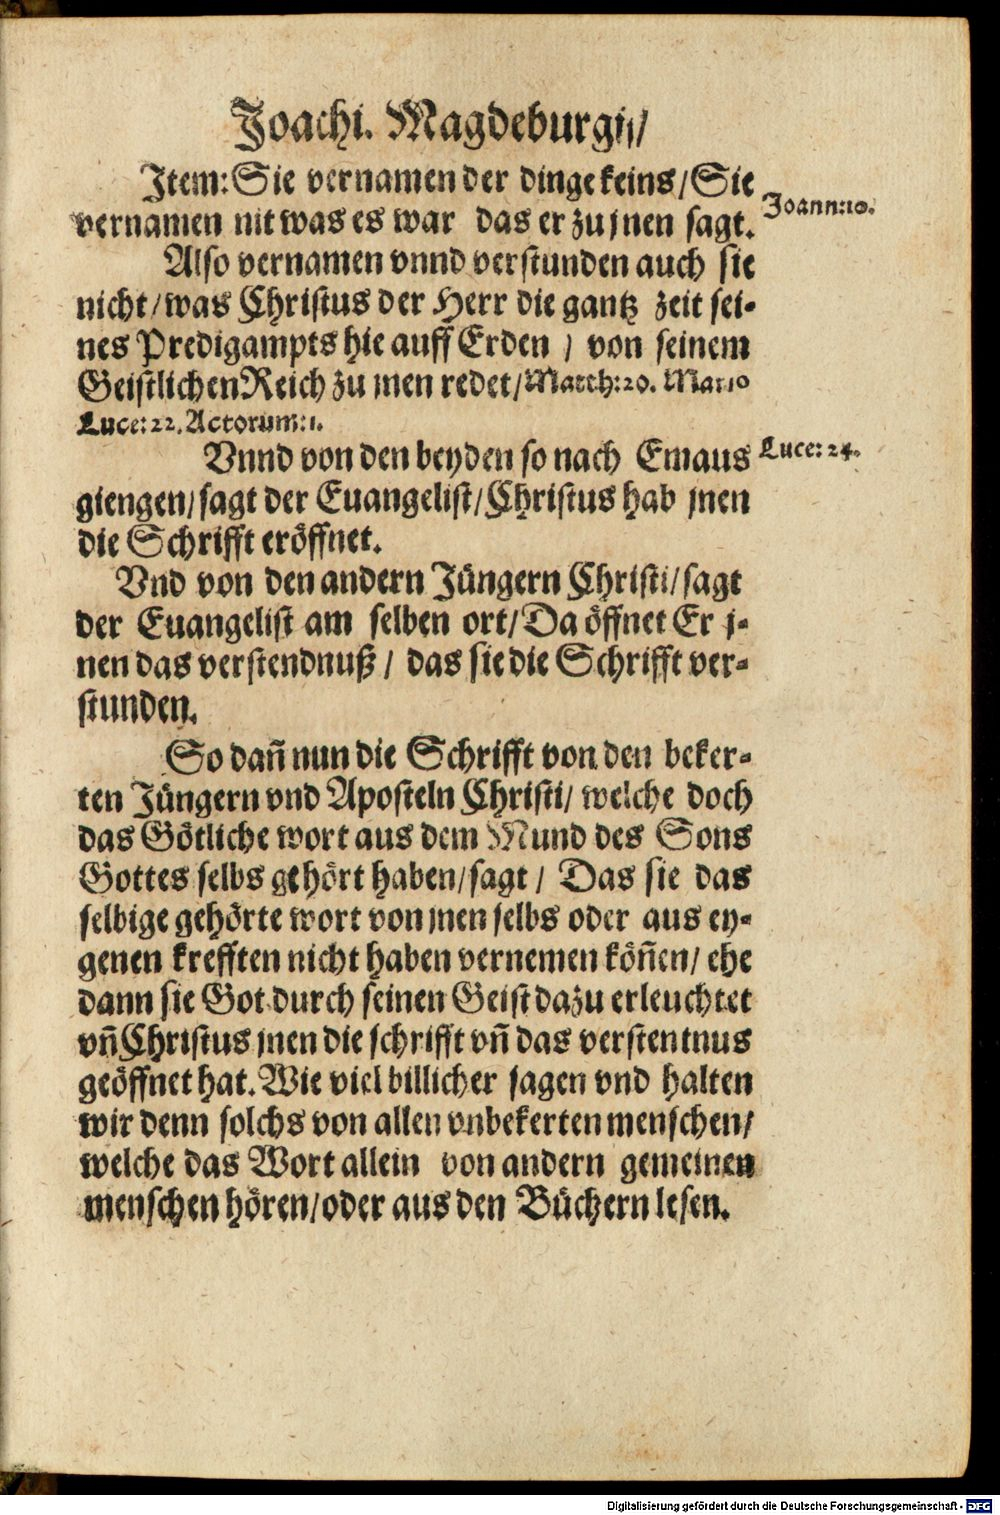 Joachi. Magdeburgij/
Item: Sie vernamen der dinge keins/Sie
vernamen nit was es war das er zu jnen sagt.
Joann:10.
Also vernamen vnnd verstunden auch sie
nicht/was Christus der Herr die gantz zeit sei-
nes Predigampts hie auff Erden / von seinem
Geistlichen Reich zu jnen redet/Matth:20. Mar:10
Luce:22. Actorum:1.
Vnnd von den beyden so nach Emaus
Luce:24.
giengen/sagt der Euangelist/Christus hab jnen
die Schrifft eröffnet.
Vnd von den andern Jüngern Christi/sagt
der Euangelist am selben ort/Da öffnet Er j-
nen das verstendnuß/ das sie die Schrifft ver-
stunden.
So dañ nun die Schrifft von den beker-
ten Jüngern vnd Aposteln Christi/ welche doch
das Götliche wort aus dem Mund des Sons
Gottes selbs gehört haben/sagt/ Das sie das
selbige gehörte wort von jnen selbs oder aus ey-
genen krefften nicht haben vernemen köñen/ ehe
dann sie Got durch seinen Geist dazu erleuchtet
vñ Christus jnen die schrifft vñ das verstentnus
geöffnet hat. Wie viel billicher sagen vnd halten
wir denn solchs von allen vnbekerten menschen/
welche das Wort allein von andern gemeinen
menschen hören/oder aus den Büchern lesen.
Digitalisierung gefördert durch die Deutsche Forschungsgemeinschaft - DFG